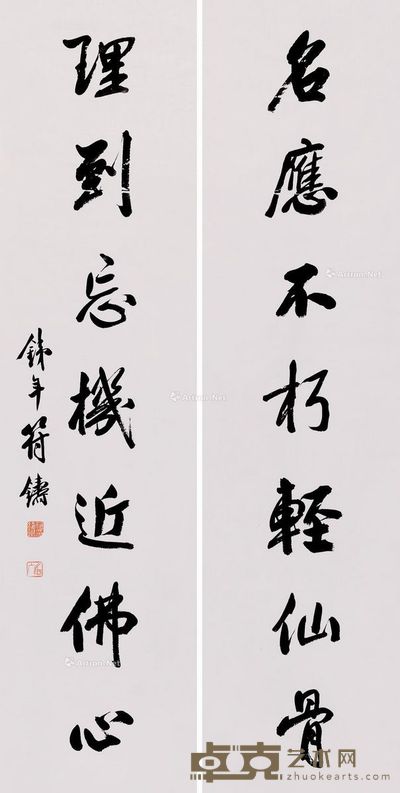 名應不朽輕仙骨
理到忘機近佛心
鐵年符鑄
Artron.Net
Artron.Net
Artron.Net
卓克艺术网
zhuokearts.com